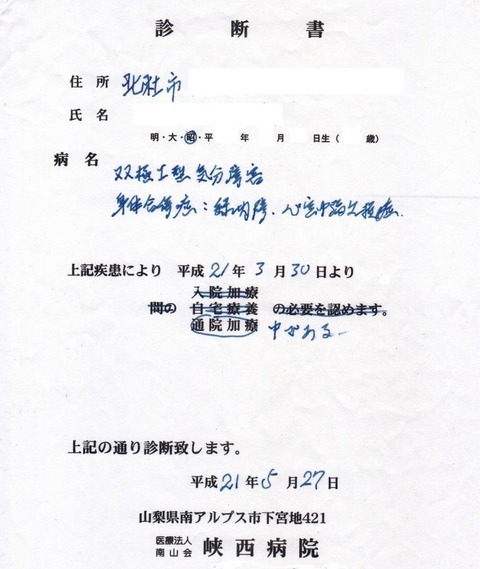 診断書
住所 北杜市
氏名
明・大・昭・平 年 月 日生( 歳)
病名
双極Ⅰ型気分障害
身体合併症:緑内障、心室中隔欠損症
上記疾患により 平成21年3月30日より
入院加療
間の 自宅療養 の必要を認めます。
通院加療 中である
上記の通り診断致します。
平成21年5月27日
山梨県南アルプス市下宮地421
医療法人
南山会 峡西病院